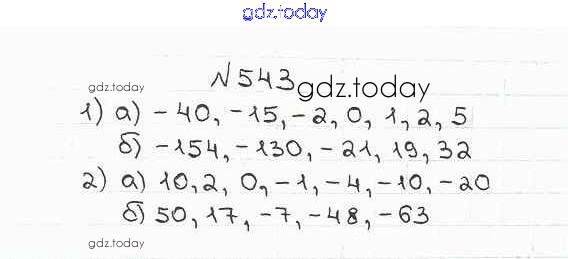 gdz.today
№543
gdz.today
gdz.today
1) а) -40, -15, -2, 0, 1, 2, 5
б) -154, -130, -21, 19, 32
gdz.today
2) а) 10, 2, 0, -1, -4, -10, -20
б) 50, 17, -7, -48, -63
gdz.today